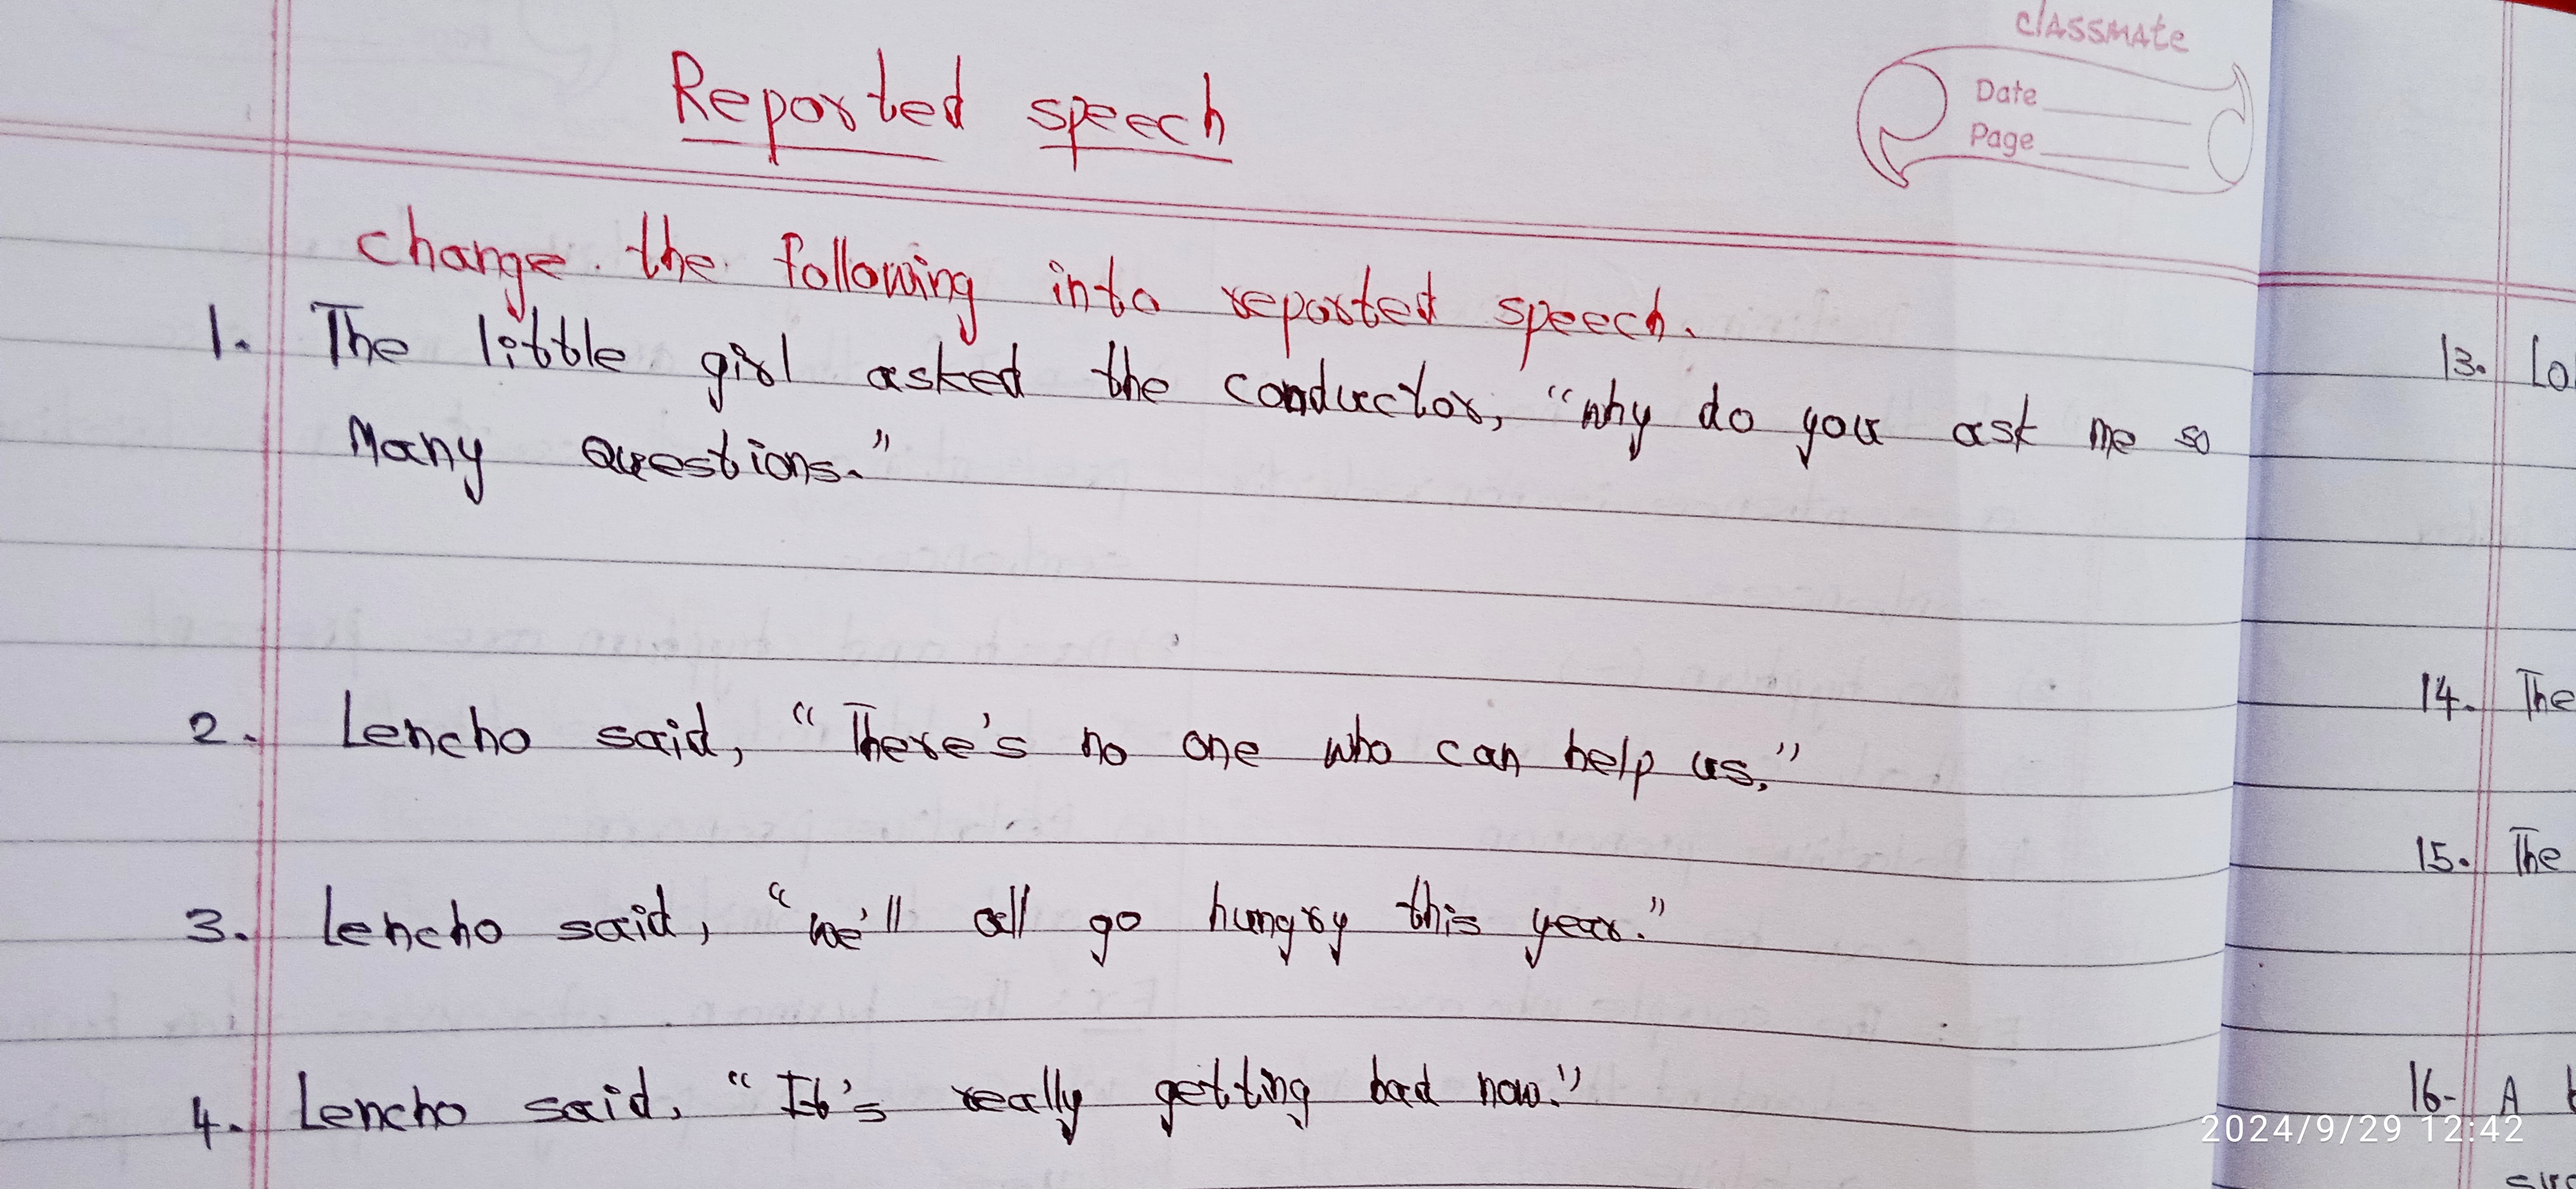 classmate
Date
Page
Reported speech
change the following into reported speech.
1. The little girl asked the conductor, "why do you ask me so
Many Questions."
2. Lencho said, "There's no one who can help us."
3. Lencho said, "we'll all go hungry this year."
4. Lencho said, "It's really getting bad now."
13. Lo
14. The
15. The
16- A
2024/9/29 12:42